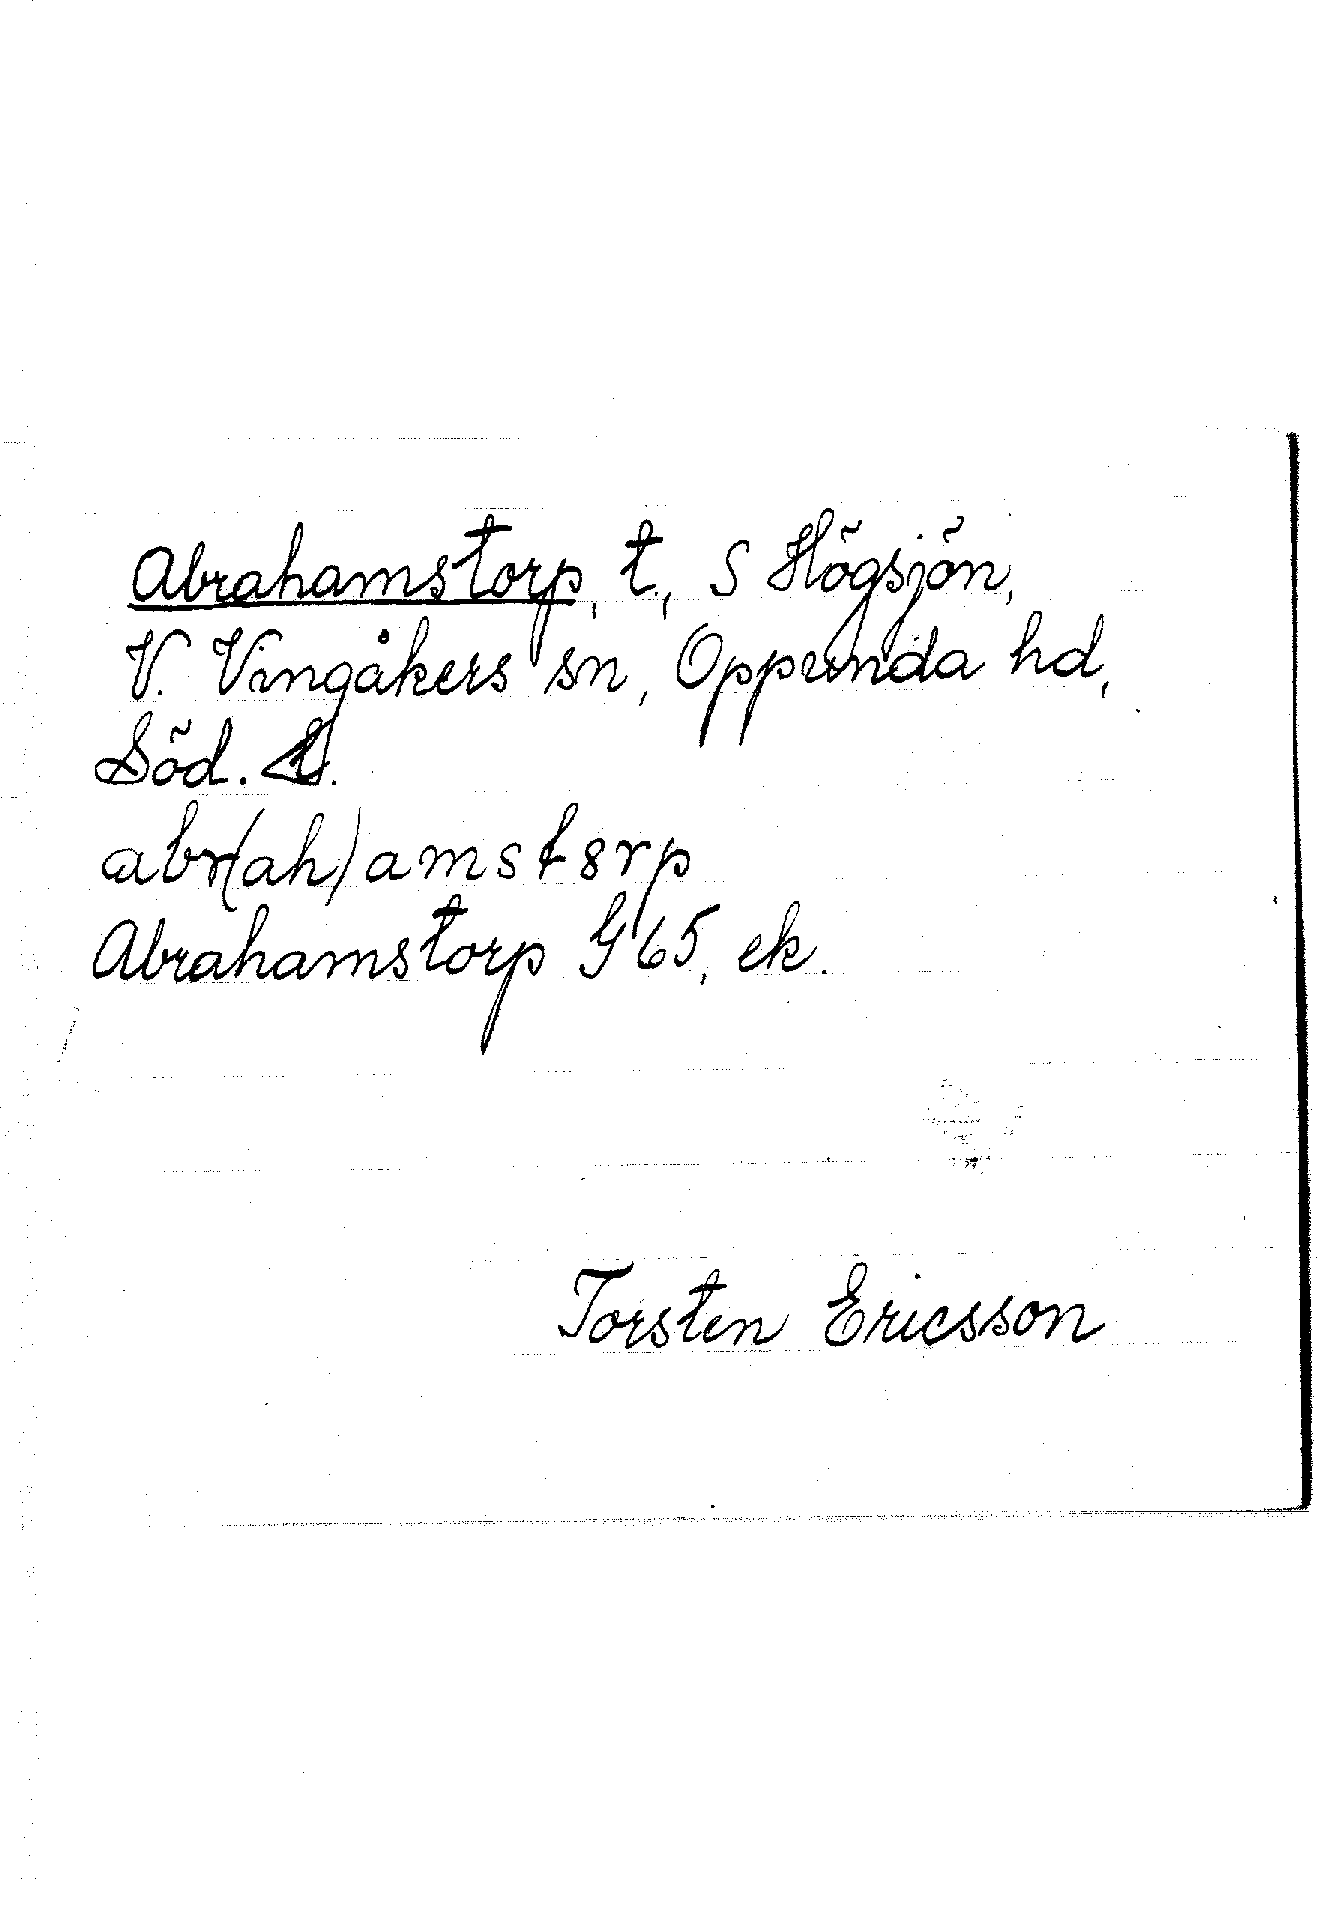 Abrahamstorp, t., S Högsjön,
V. Vingåkers sn, Oppunda hd,
Söd. L.
abr(ah)amst8rp
Abrahamstorp G 65, ek.
Torsten Ericsson